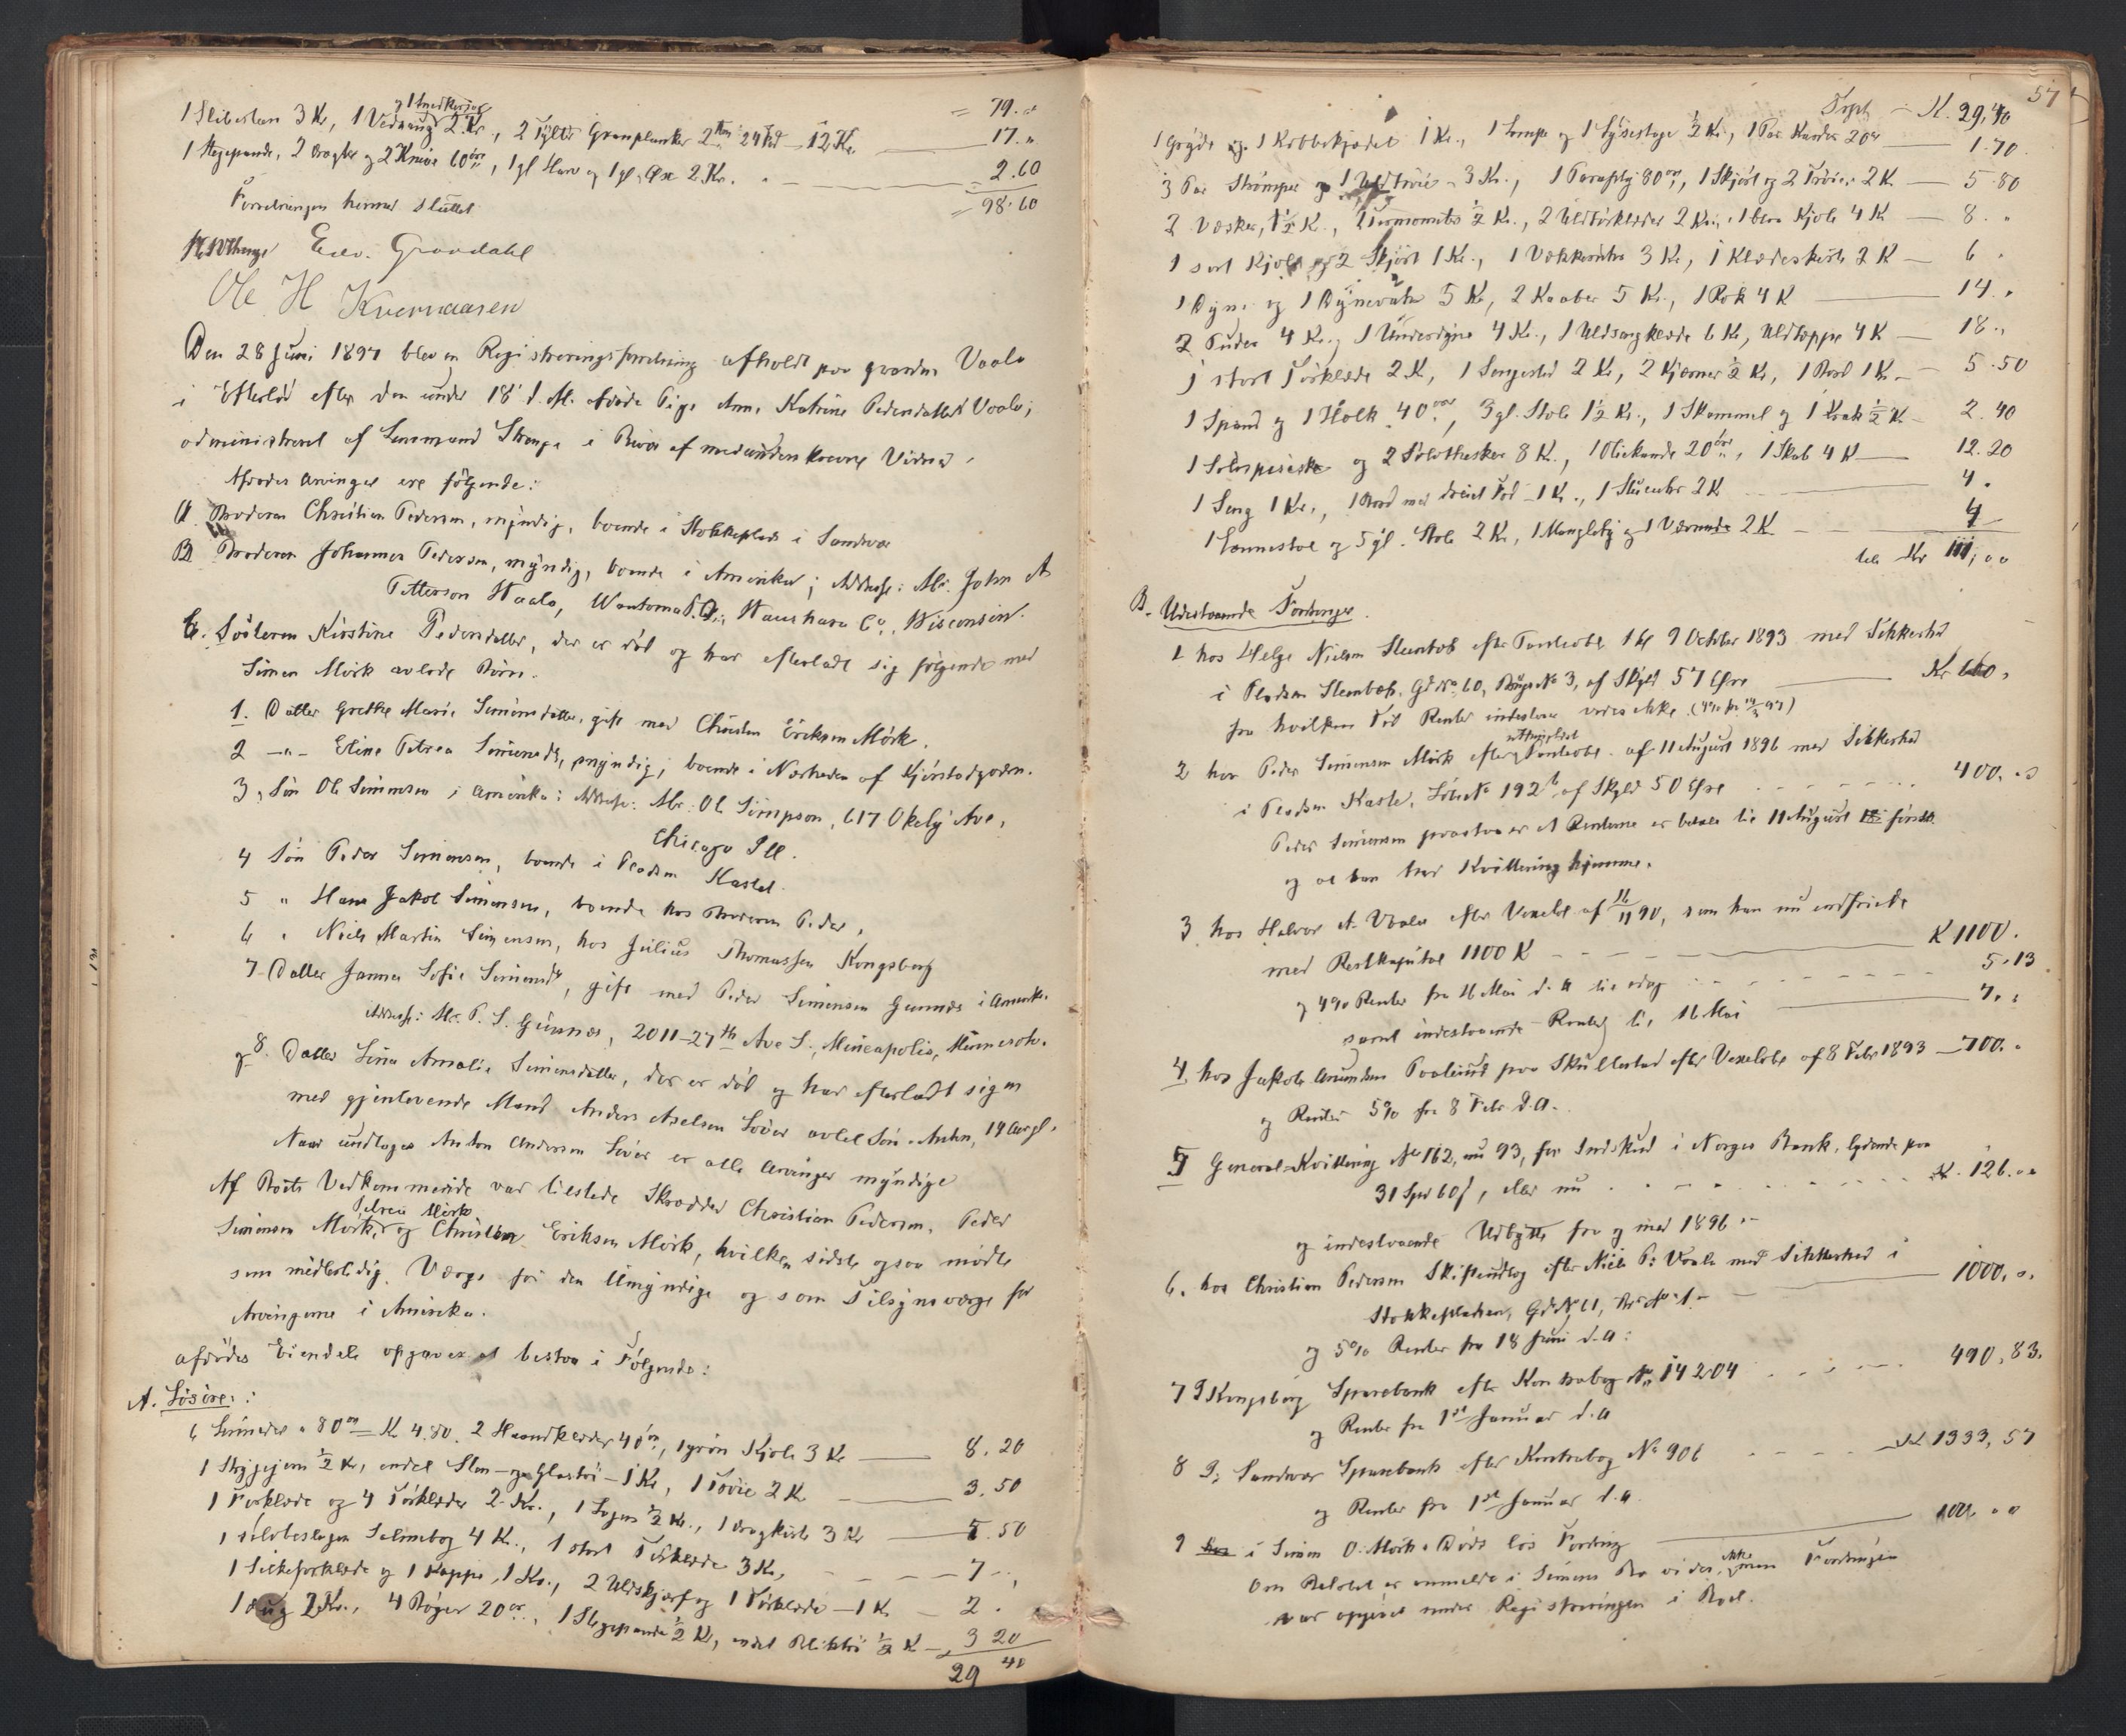 og 1 Snedkersag
1 Slibesten 3 Kr, 1 Vedsaug 2 Kr., 2 Tylter Granplanker 12 Kr. = 79. "
17. "
1 Stegepande, 2 og 2 Knive 60 øre, 1 gl Harv og 1 gl. Øxe 2 Kr. 2.60
Forretningen hermed sluttet = 98.60
Grøndahl
Ole H Kvernaasen
Den 28 Juni 1897 blev en Registreringsforretning afholdt paa gaarden Vaala
i Efterladt efter den under 18' d. M. afdøde Pige Anne Katrine Pedersdatter Vaala,
administreret af Lensmand i af medunderskrevne Vidner.
Afdødes Arvinger ere følgende:
A. Broderen Christian Pedersen, myndig, boende i Stokkeplads i Sandsvær
B. Broderen Johannes Pedersen, myndig, boende i Amerika; Adresse: Mr. John A
Petterson Waala, Wautoma P.O., Waushara Co., Wisconsin.
C. Søsteren Kirstine Pedersdatter, der er død og har efterladt sig følgende med
Simen Mørk avlede Børn.
1. Datter Grethe Marie Simensdatter, gift med Christen Eriksen Mørk.
2 —"— Eline Petrea Simensdtr, myndig, boende i Nærheden af
3, Søn Ole Simensen i Amerika: Adresse: Mr. Ole Simpson, 617 Okely Ave,
Chicago Ill.
4 Søn Peder Simensen, boende i Pladsen Kastet.
5 " Hans Jakob Simensen, boende hos Broderen Peder,
6 " Niels Martin Simensen, hos Julius Thomassen Kongsberg
7. Datter Janna Sofie Simensdtr, gift med Peder Simensen Gunnes i Amerika.
Adresse: Mr. P. S. Gunnes, 2011–27th Ave S., Mineapolis, Minnesota.
og 8. Datter Lina Amalie Simensdatter, der er død og har efterladt sig en
med gjenlevende Mand Anders Axelsen avlet Søn Anton, 14 Aar gl.
Naar undtages Anton Andersen er alle Arvinger myndige
Af Boets Vedkommende var tilstede Skrædder Christian Pedersen, Peder
Petrea Mørk
Simensen Mørk, og Christen Eriksen Mørk, hvilken sidste ogsaa mødte
som midlertidig Værge for den Umyndige og som Tilsynsværge for
Arvingerne i Amerika.
Afdødes Eiendele opgaves at bestaa i Følgende:
A. Løsøre:
6 à 80 øre = Kr 4.80, 2 Haandklæder 40 øre, 1 grøn Kjole 3 Kr — 8.20
1 Strygejern ½ Kr, endel Sten- og Glastøi – 1 Kr, 1 Trøie 2 Kr — 3.50
1 Forklæde og 4 Tørklæder 2 Kr., 1 Lagen ½ Kr., 1 Dragkiste 3 Kr — 5.50
1 sølvbeslagen Salmebog 4 Kr., 1 stort Tørklæde 3 Kr, — 7 –,
1 Silkeforklæde og 1 Kappe 1 Kr., 2 Uldskjærf og 1 Tørklæde – 1 Kr — 2.
1 Dug 2 Kr., 4 Bøger 20 øre, 1 Stegepande ½ Kr, endel Bliktøi ½ Kr — 3 20
29 40
57
Trpt — K. 29,40
1 Gryde og 1 1 Kr., 1 Lampe og 1 Lysestage ½ Kr., 1 Par Karder 20 ør — 1.70
3 Par Strømper og 1 Uldtrøie – 3 Kr., 1 Paraply 80 ør, 1 Skjørt og 2 Trøier 2 K — 5.80
2 Væsker, 1½ K., 1 Termometer ½ Kr., 2 Uldtørklæder 2 Kr., 1 blaa Kjole 4 K — 8. "
1 sort Kjole og 2 Skjørt 1 Kr., 1 Vækkeruhr 3 Kr, 1 Klædeskiste 2 K — 6 "
1 Dyne og 1 Dynevar 5 Kr, 2 Kaaber 5 Kr., 1 Rok 4 K — 14. "
2 Puder 4 Kr., 1 Underdyne 4 Kr., 1 Uldsengklæde 6 Kr, Uldtæppe 4 K — 18.,
1 stort Tørklæde 2 K, 1 Sengested 2 Kr, 2 Kjærner ½ Kr, 1 Bord 1 K. — 5.50
1 Spand og 1 Holk 40 øre, 3 gl. Stole 1½ Kr., 1 Skammel og 1 Krak ½ K. 2.40
1 Sølvspiseske og 2 Sølvtheskeer 8 K., 1 Oliekande 20 øre, 1 Skab 4 K — 12.20
1 Seng 1 Kr., 1 Bord med dreiet Fod – 1 K., 1 Stueuhr 2 K — 4.
1 Lænestol og 5 gl. Stole 2 Kr, 1 Mangletøj og 1 2 K — 4
tils Kr 111,00
B. Udestaaende Fordringer.
1 hos Helge Nielsen Steenbæk efter Panteobl. 9 October 1893 med Sikkerhed
i Pladsen Steenbæk, Gd No 60, Brugs No 3, af Skyld 57 Øre — Kr 600,
fra hvilken Tid Renter indestaar vides ikke.
2 hos Peder Simensen Mørk efter Panteobl. af 11 August 1896 med Sikkerhed
i Pladsen Kastet, Løbe No 192 b af Skyld 50 Øre — 400. "
Peder Simensen paastaar at Renterne er betalt til 11 August
og at han har Kvittering hjemme.
3 hos Halvor A. Vaala efter Vexelobl af 16/11 90, som han nu indfriede
med Restkapital 1100 K — K 1100.
og 4% Renter fra 16 Mai d. A til idag — 5.13
samt indestaaende Renter til 16 Mai — 7. "
4, hos Jakob Amundsen paa Skullestad efter Vexelobl af 8 Febr 1893 — 700. "
og Renter 5% fra 8 Febr d. A.
5 General-Kvittering No 162, nu 93, for Indskud i Norges Bank, lydende paa
31 Spd 60 β, eller nu — K. 126."
og indestaaende Udbytte fra og med 1896.
6. hos Christian Pedersen Skifteudlæg efter Niels P. Vaala med Sikkerhed i
Stokkepladsen, Gd No 61, Br No 1. — 1000. ".
og 5% Renter fra 18 Juni d. A:
7 I Kongsberg Sparebank efter Kontrabog No 14204 — 490,83.
og Renter fra 1ste Januar d. A
8 I Sandsvær Sparebank efter Kontrabog No 906 — K 1333,57
og Renter fra 1ste Januar d. A.
9 i Simen O. Mørks Døds bo Fordring — 100. "
Om Beløbet er anmeldt i Simens Bo vides ikke, men Fordringen
var opgivet under Registreringen i Boet.